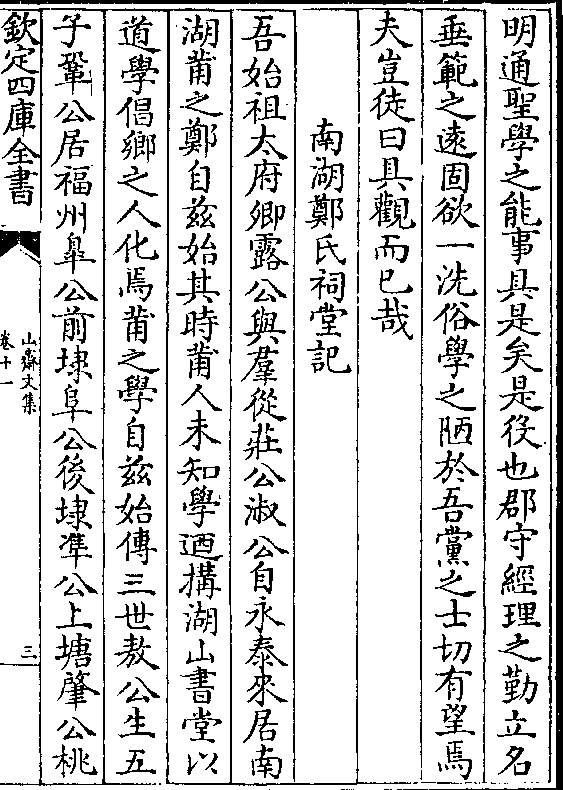 明通聖學之能事具是矣是役也郡守經理之勤立名
垂範之遠固欲一洗俗學之陋於吾黨之士切有望焉
夫豈徒曰具觀而已哉
南湖鄭氏祠堂記
吾始祖太府卿露公與羣從莊公淑公自永泰來居南
湖莆之鄭自兹始其時莆人未知學迺搆湖山書堂以
道學倡鄉之人化焉莆之學自兹始傳三世敖公生五
子鞏公居福州臯公前埭阜公後埭凖公上塘肇公桃
欽定四庫全書
山齋文集
卷十一
三